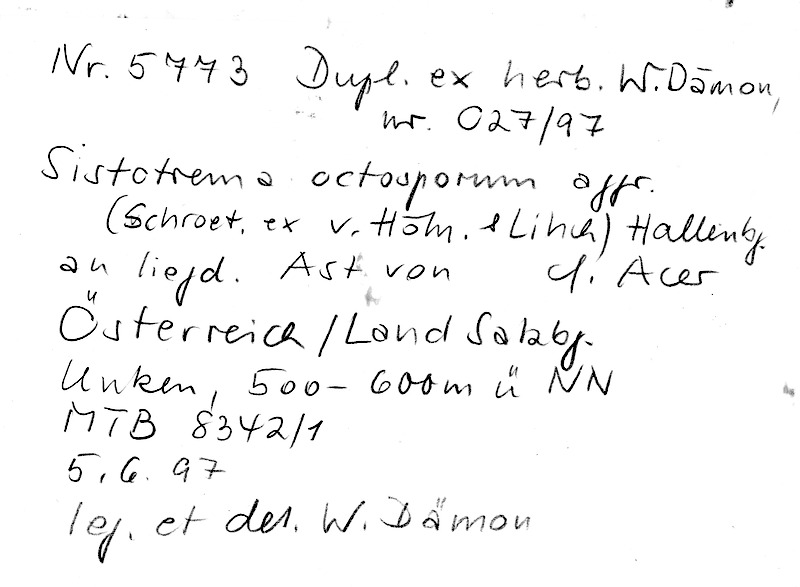 Nr. 5773 Dupl. ex herb. W. Dämon,
nr. 027/97
Sistotrema octosporum aggr.
(Schroet. ex v. Höhn. & Litsch) Hallenbg.
an liegd. Ast von cf. Acer
Österreich / Land Salzbg.
Unken, 500-600m ü NN
MTB 8342/1
5.6.97
leg. et det. W. Dämon